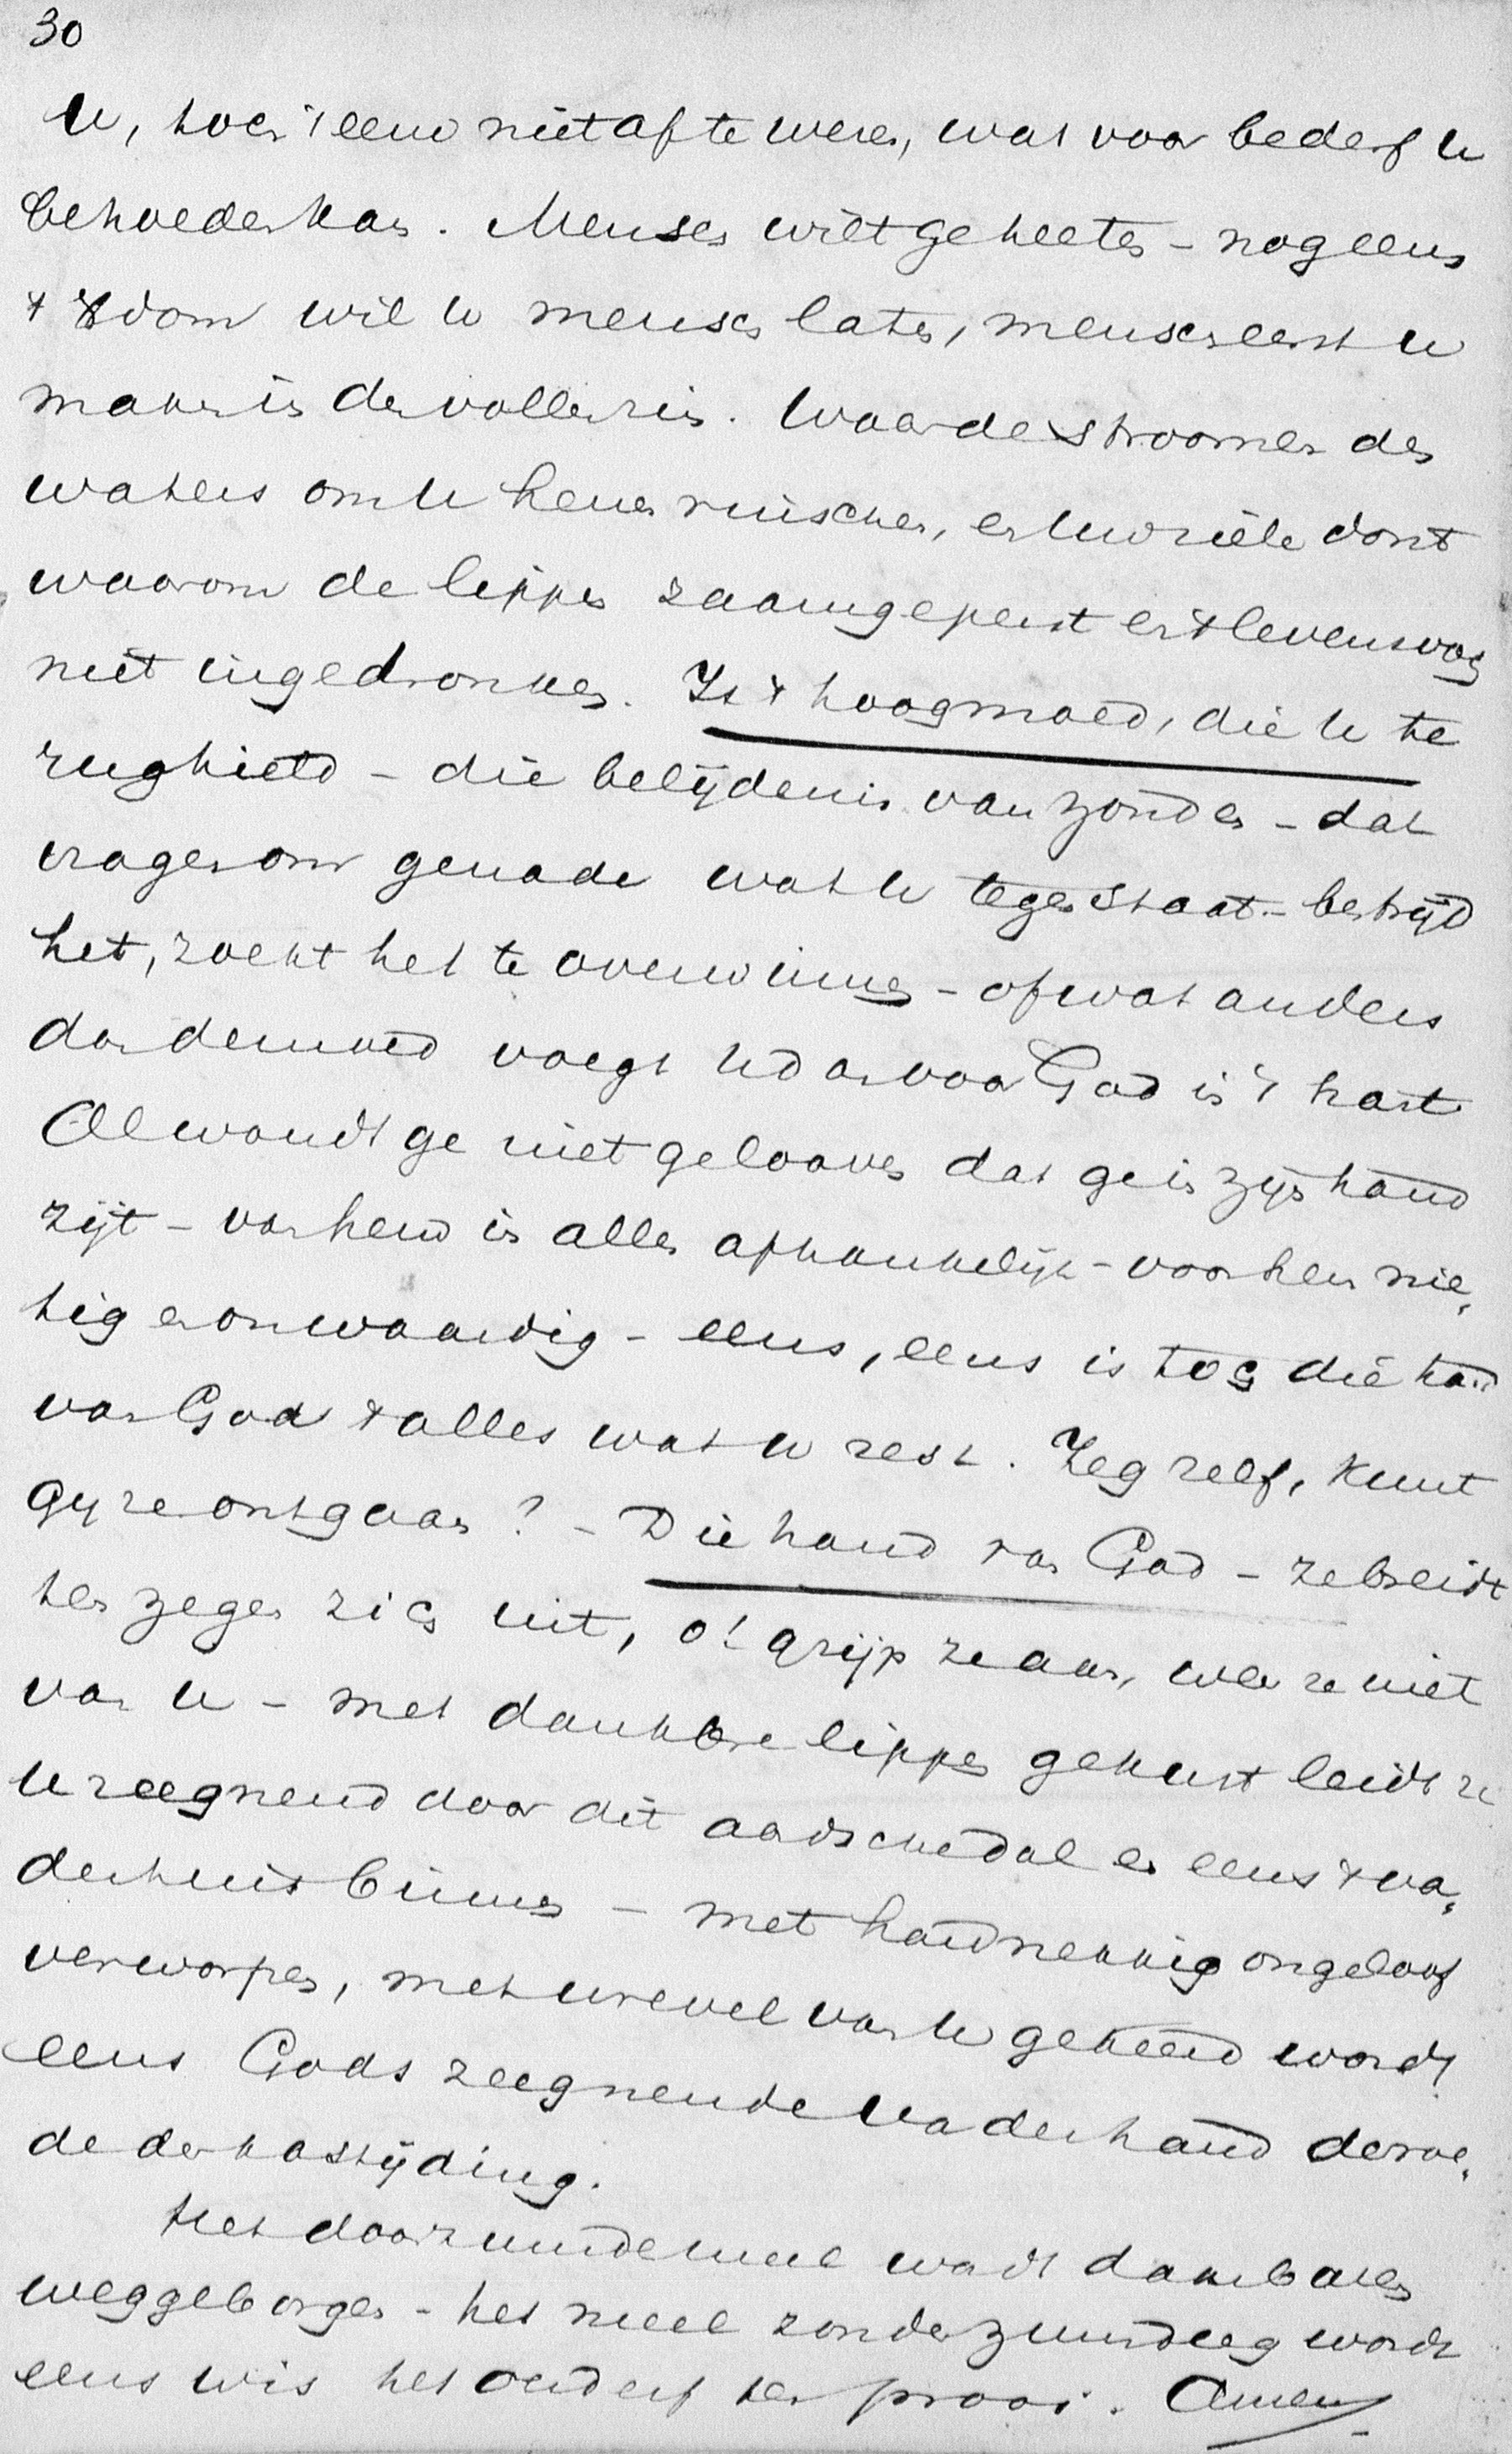 30
U, hoor 't leeuw niet af te weren, wat voor bederf U
behoeden kan. Mensen wilt ge heeten - nog eens
't Xdom wil U mensen laten, mensch eerst U
maken in den vollen zin. Waar de stroomen des
waters om U henen ruischen, en Uw ziele dorst
waarom de lippen zaamgeperst en 't levensvog
niet ingedronken. Is 't hoogmoed, die U te
rughield - die belijdenis van zonden - dat
vragen om genade wat U tegenstaat - bestrijd
het, zoekt het te overwinnen - of wat anders
dan demoed voegt U dan voor God in 't hart
Al woudt ge niet gelooven dat ge in zijn hand
zijt - van hem in alles afhankelijk - voor hem nie„
tig en onwaardig - eens, eens is toch die hand
van God 't alles wat U rest. Zeg zelf, kunt
gij ze ontgaan? - Die hand van God - ze breidt
ten zegen zich uit, o! grijp ze aan, weer ze niet
van U - met dankbre lippen gekust leidt ze
U zeegnend door dit aardsche dal en eens 't va„
derhuis binnen - met hardnekkig ongeloof
verworpen, met wrevel van U gekeerd wordt
eens Gods zeegnende Vaderhand de roe„
de der kastijding.
Het doorzuurde meel wordt dankbaar
weggeborgen - het meel zonder zuurdeeg wordt
eens wis het bederf ten prooi. Amen